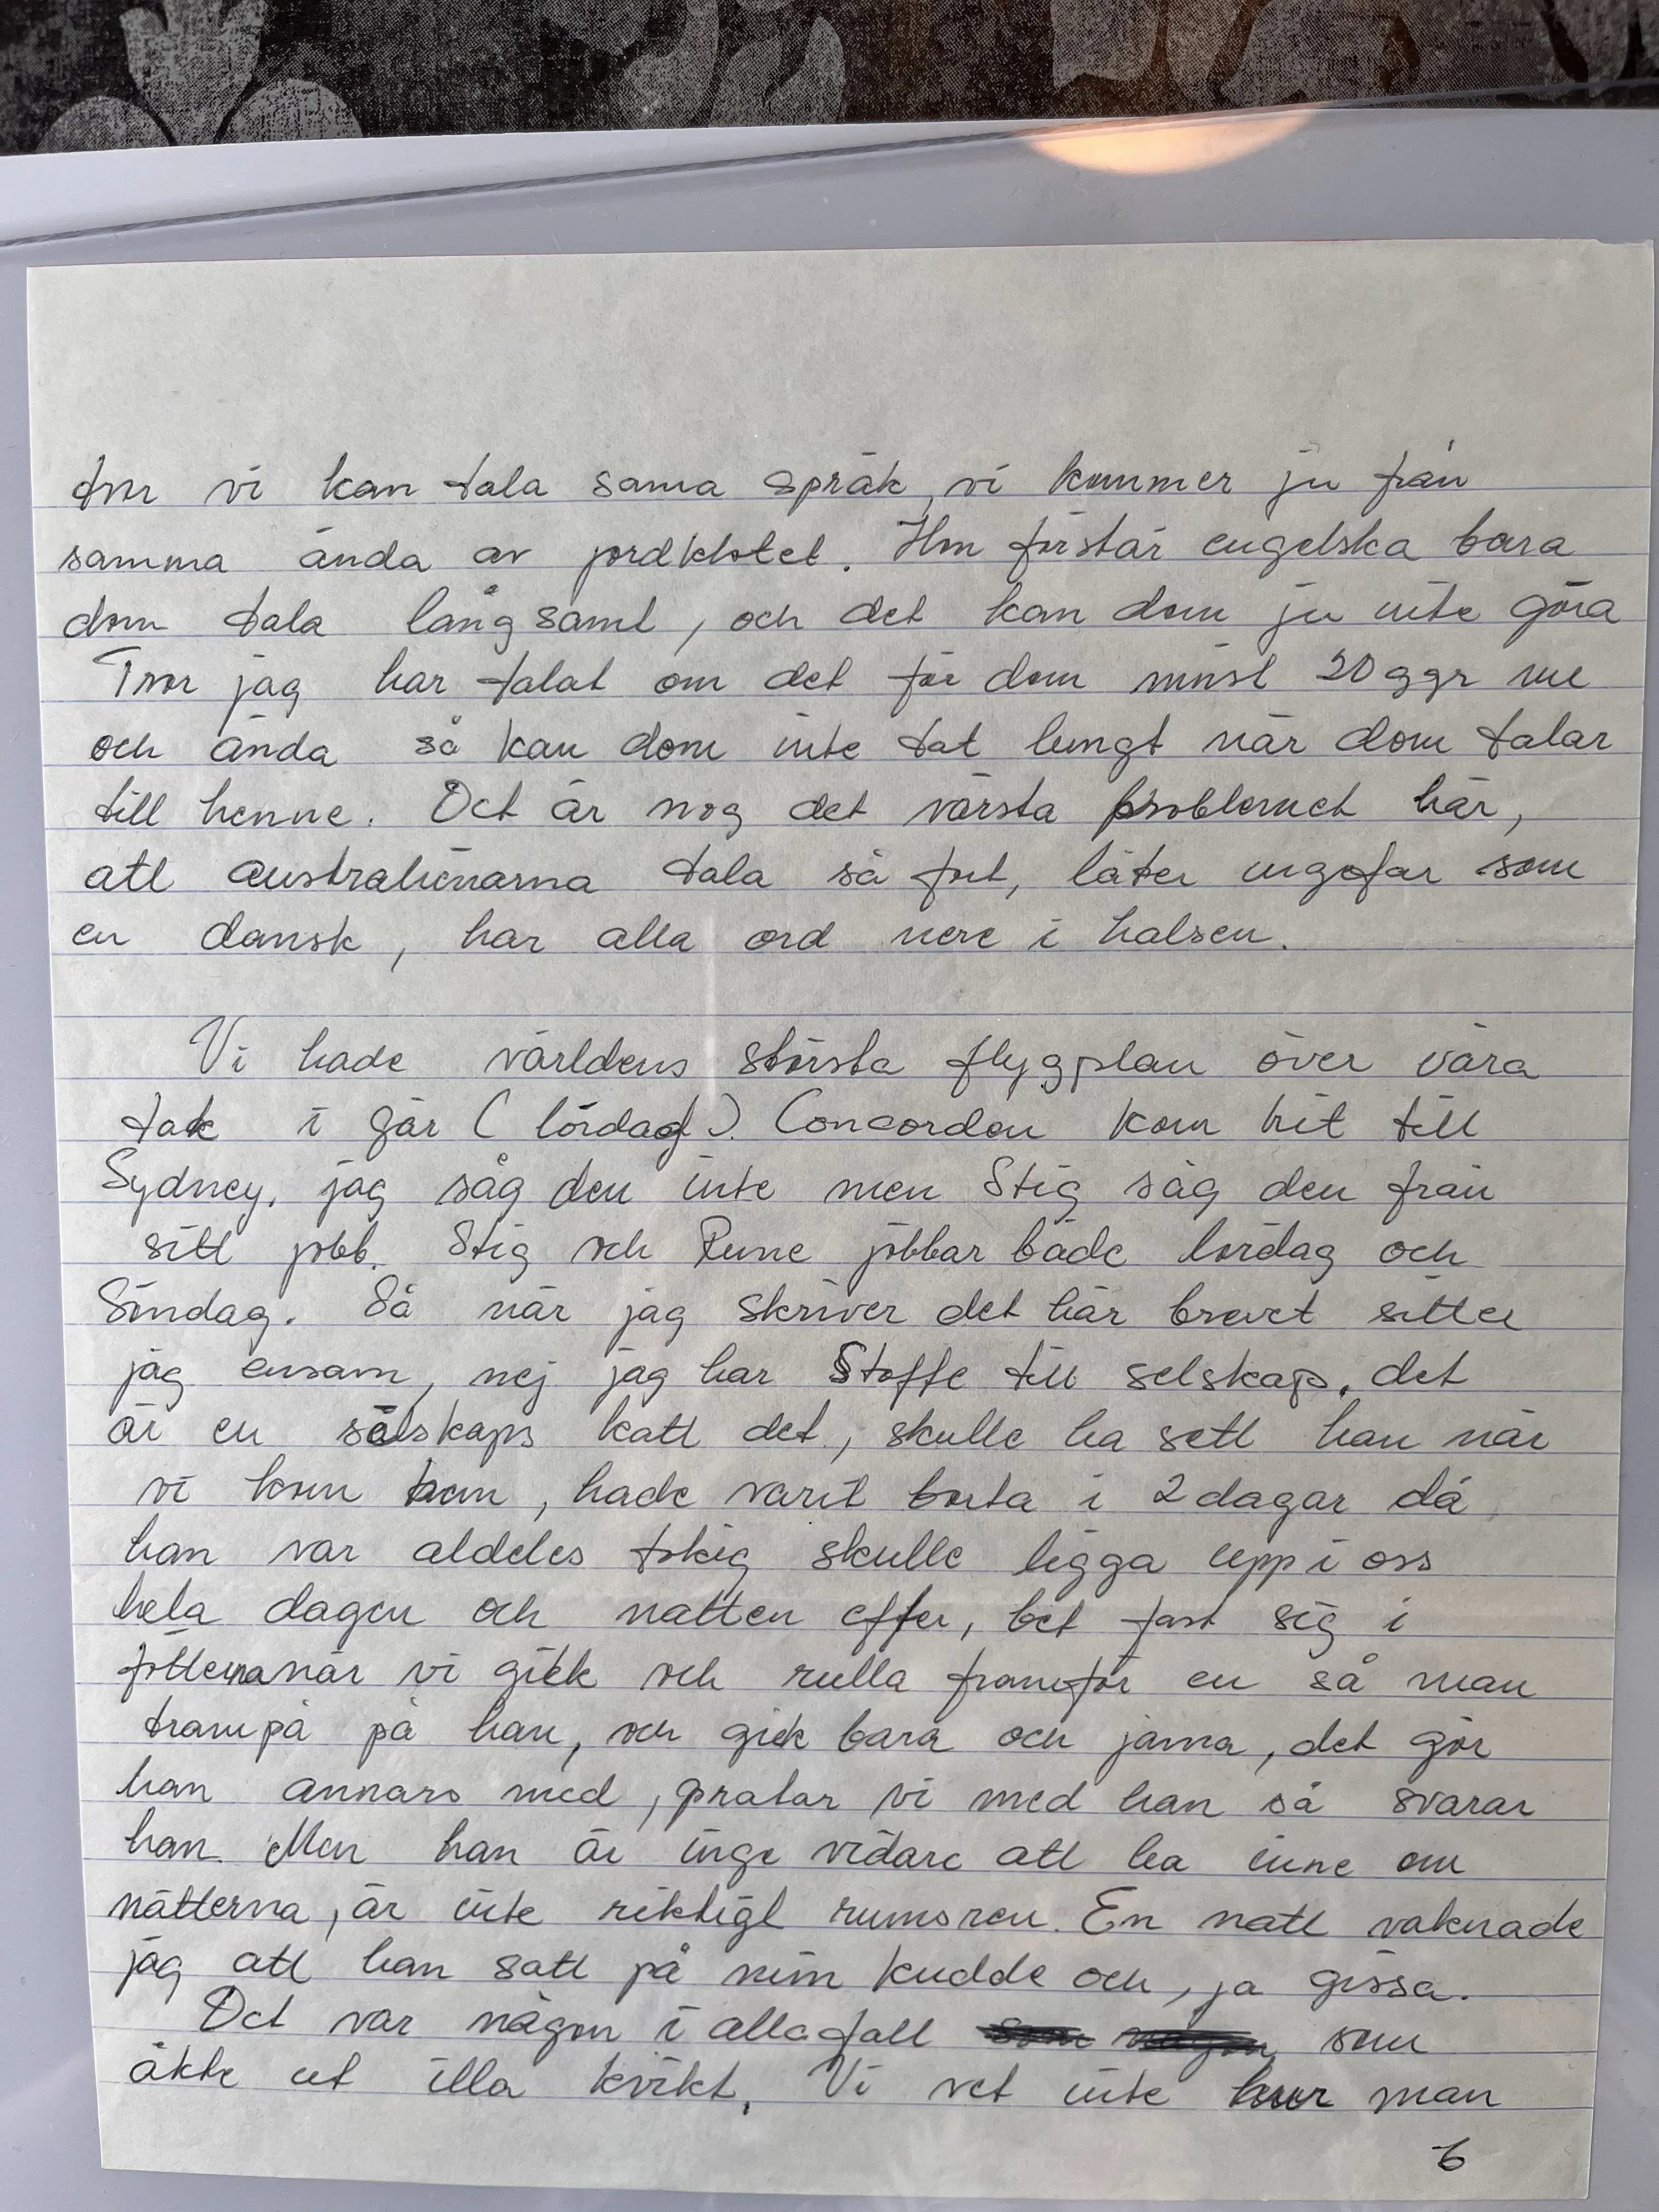 tror vi kan tala sama språk, vi kommer ju från
samma ända av jordklotet. Hon förstår engelska bara
dom tala långsamt, och det kan dom ju inte göra
Tror jag har talat om det för dom minst 20 ggr nu
och ända så kan dom inte tat lungt när dom talar
till henne. Det är nog det värsta problemet här,
att australienarna tala så fort, låter ungefär som
en dansk, har alla ord nere i halsen.
Vi hade världens största flygplan över våra
tak i går (lördag). Concorden kom hit till
Sydney, jag såg den inte men Stig såg den från
sitt jobb. Stig och Rune jobbar både lördag och
Söndag. Så när jag skriver det här brevet sitter
jag ensam, nej jag har Stoffe till selskap, det
är en sälskaps katt det, skulle ha sett han när
vi kom hem, hade varit borta i 2 dagar då
han var aldeles tokig skulle ligga upp i oss
hela dagen och natten efter, bet fast sig i
fötterna när vi gick och rulla framför en så man
trampå på han, och gick bara och jama, det gör
han annars med, pratar vi med han så svarar
han. Men han är inge vidare att ha inne om
nätterna, är inte riktigt rumsren. En natt vaknade
jag att han satt på min kudde och, ja gissa.
Det var någon i allafall som
åkte ut illa kvikt. Vi vet inte hur man
6